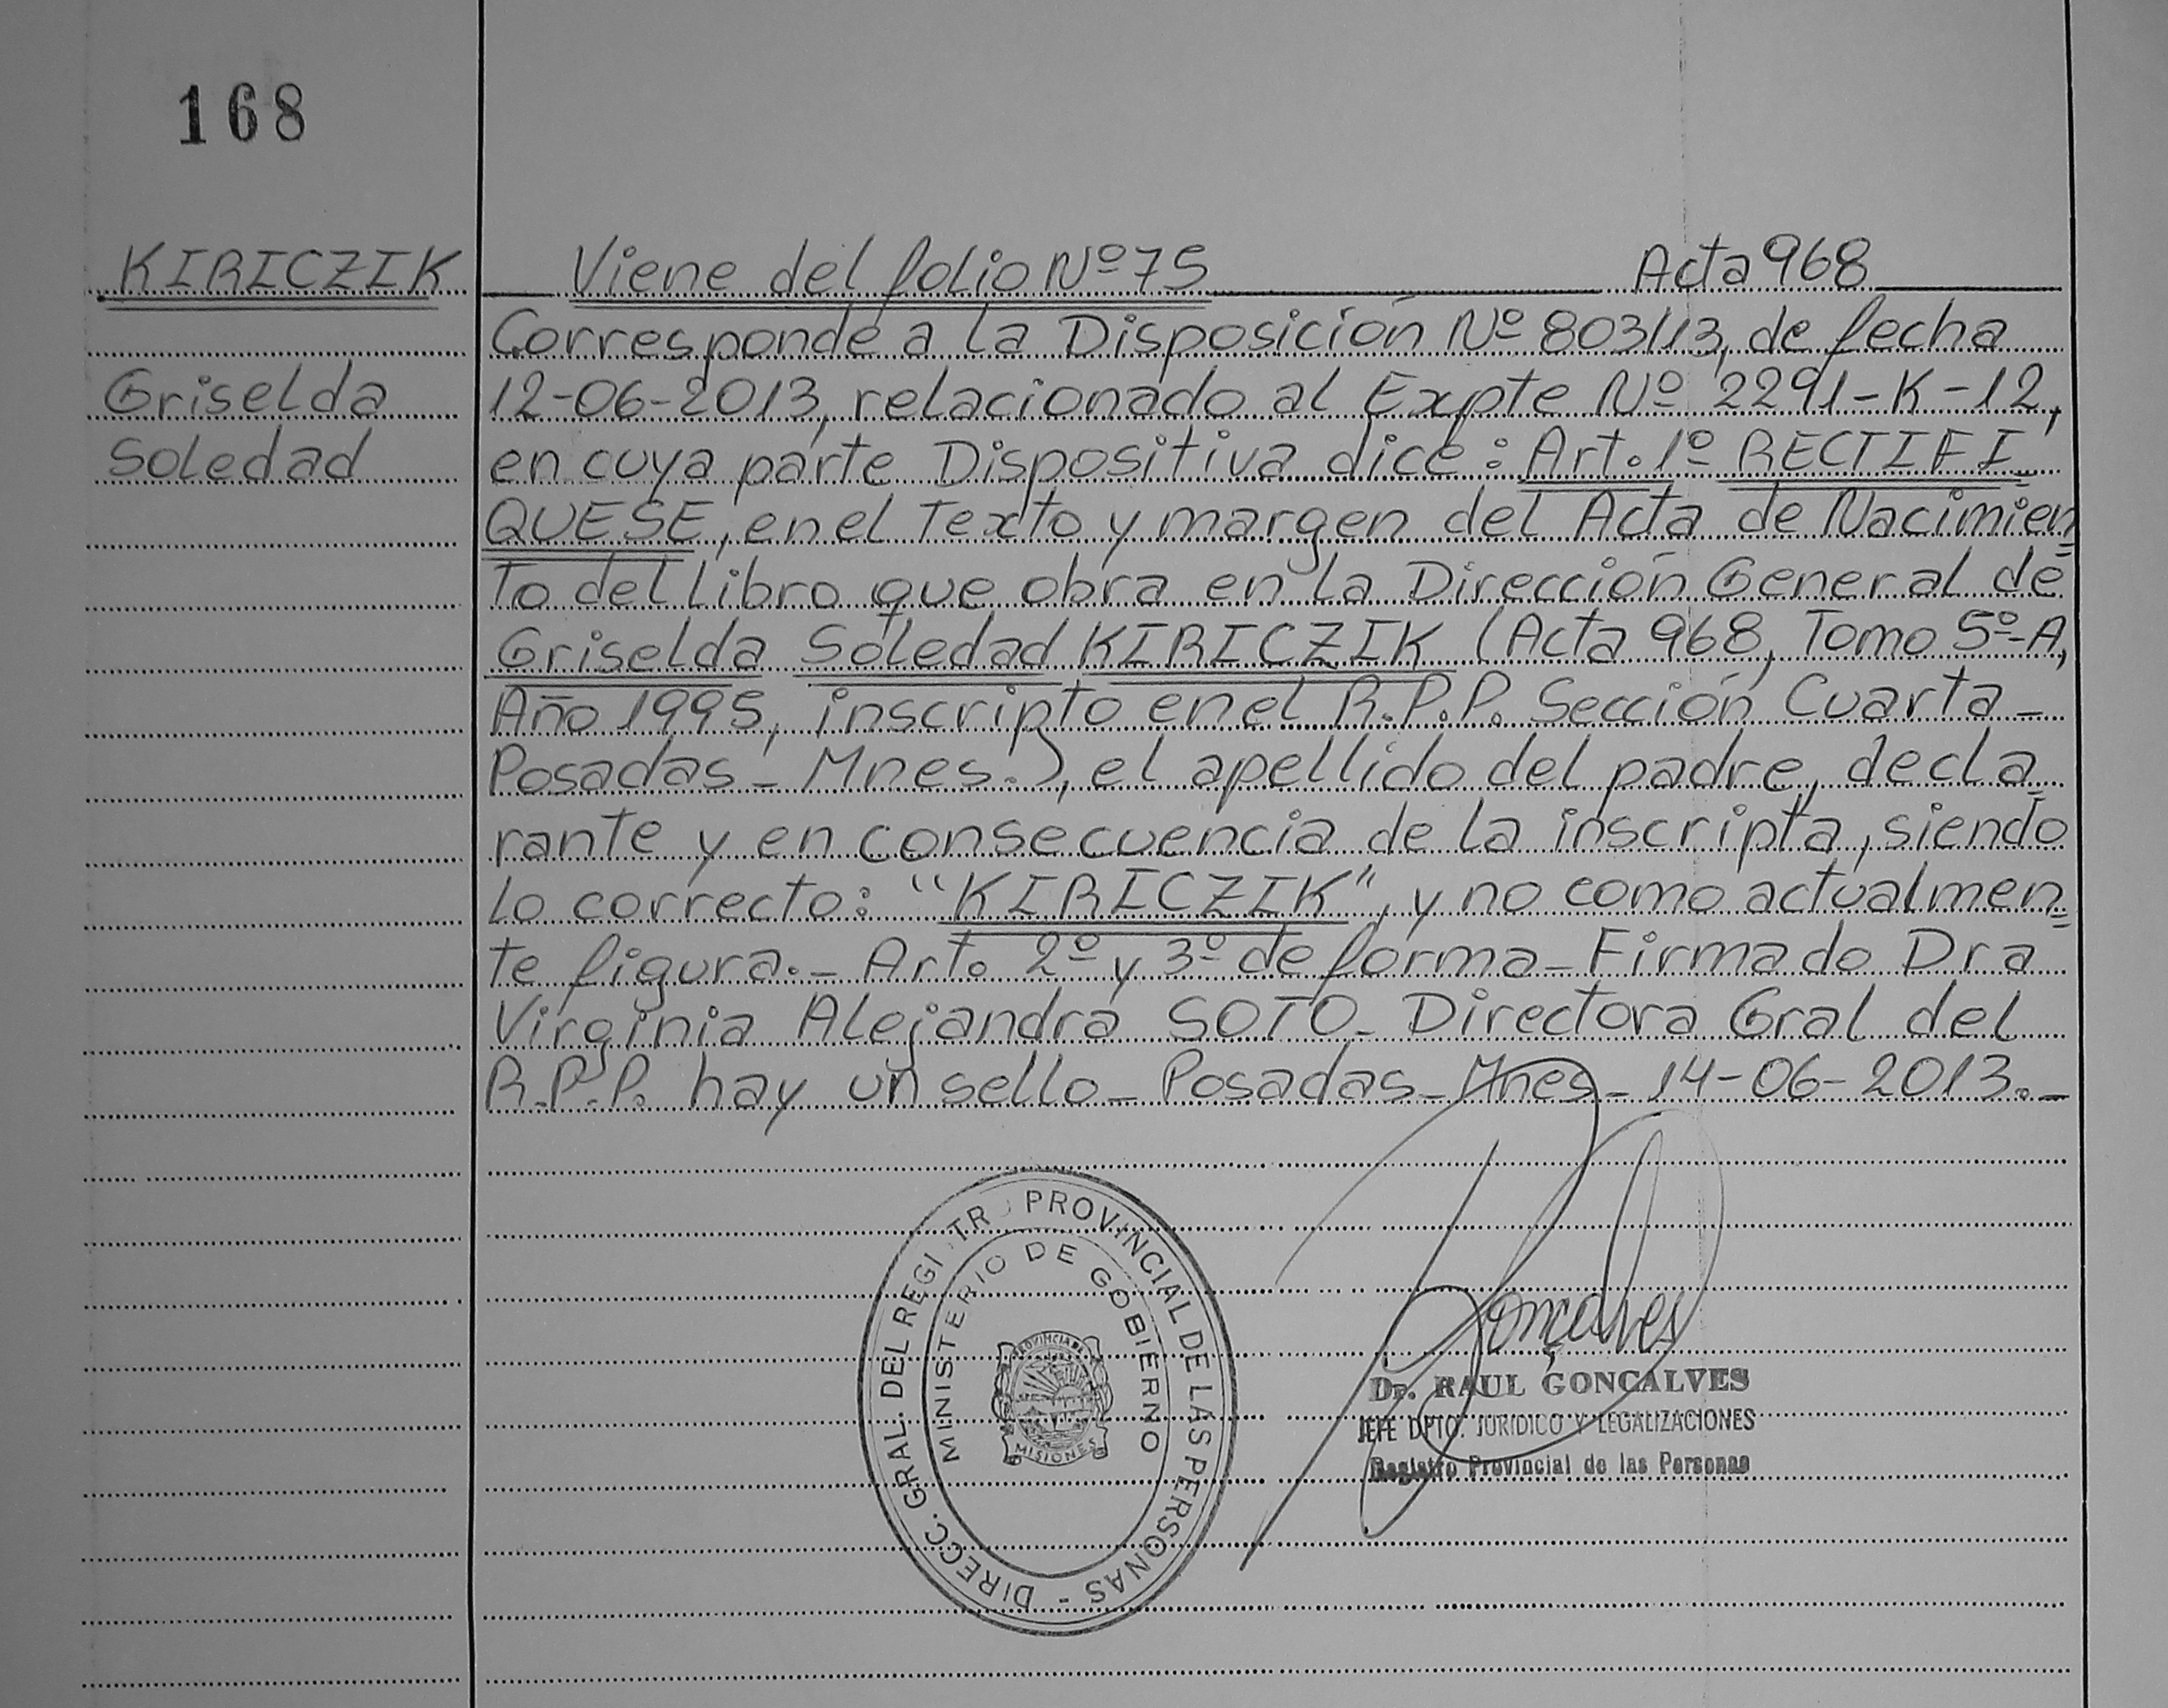 168
KIRICZIK
Griselda
Soledad
Viene del folio Nº 75 Acta 968
Corresponde a la Disposición Nº 803/13, de fecha
12-06-2013, relacionado al Expte Nº 2291-K-12,
en cuya parte Dispositiva dice: Art. 1º RECTIFI
QUESE, en el Texto y margen del Acta de Nacimien=
To del Libro que obra en la Dirección General de
Griselda Soledad KIRICZIK (Acta 968, Tomo 5º-A,
Año 1995, inscripto en el R.P.P. Sección Cuarta-
Posadas- Mnes.), el apellido del padre, decla=
rante y en consecuencia de la inscripta, siendo
lo correcto: "KIRICZIK", y no como actualmen=
te figura.- Art. 2º y 3º de forma- Firmado Dra
Virginia Alejandra SOTO- Directora Gral del
R.P.P. hay un sello- Posadas- Mnes- 14-06-2013.-
DIRECC. GRAL. DEL REGISTRO PROVINCIAL DE LAS PERSONAS -
MINISTERIO DE GOBIERNO
PROVINCIA DE
MISIONES
Gonçalves
Dr. RAUL GONÇALVES
JEFE DPTO. JURIDICO Y LEGALIZACIONES
Registro Provincial de las Personas